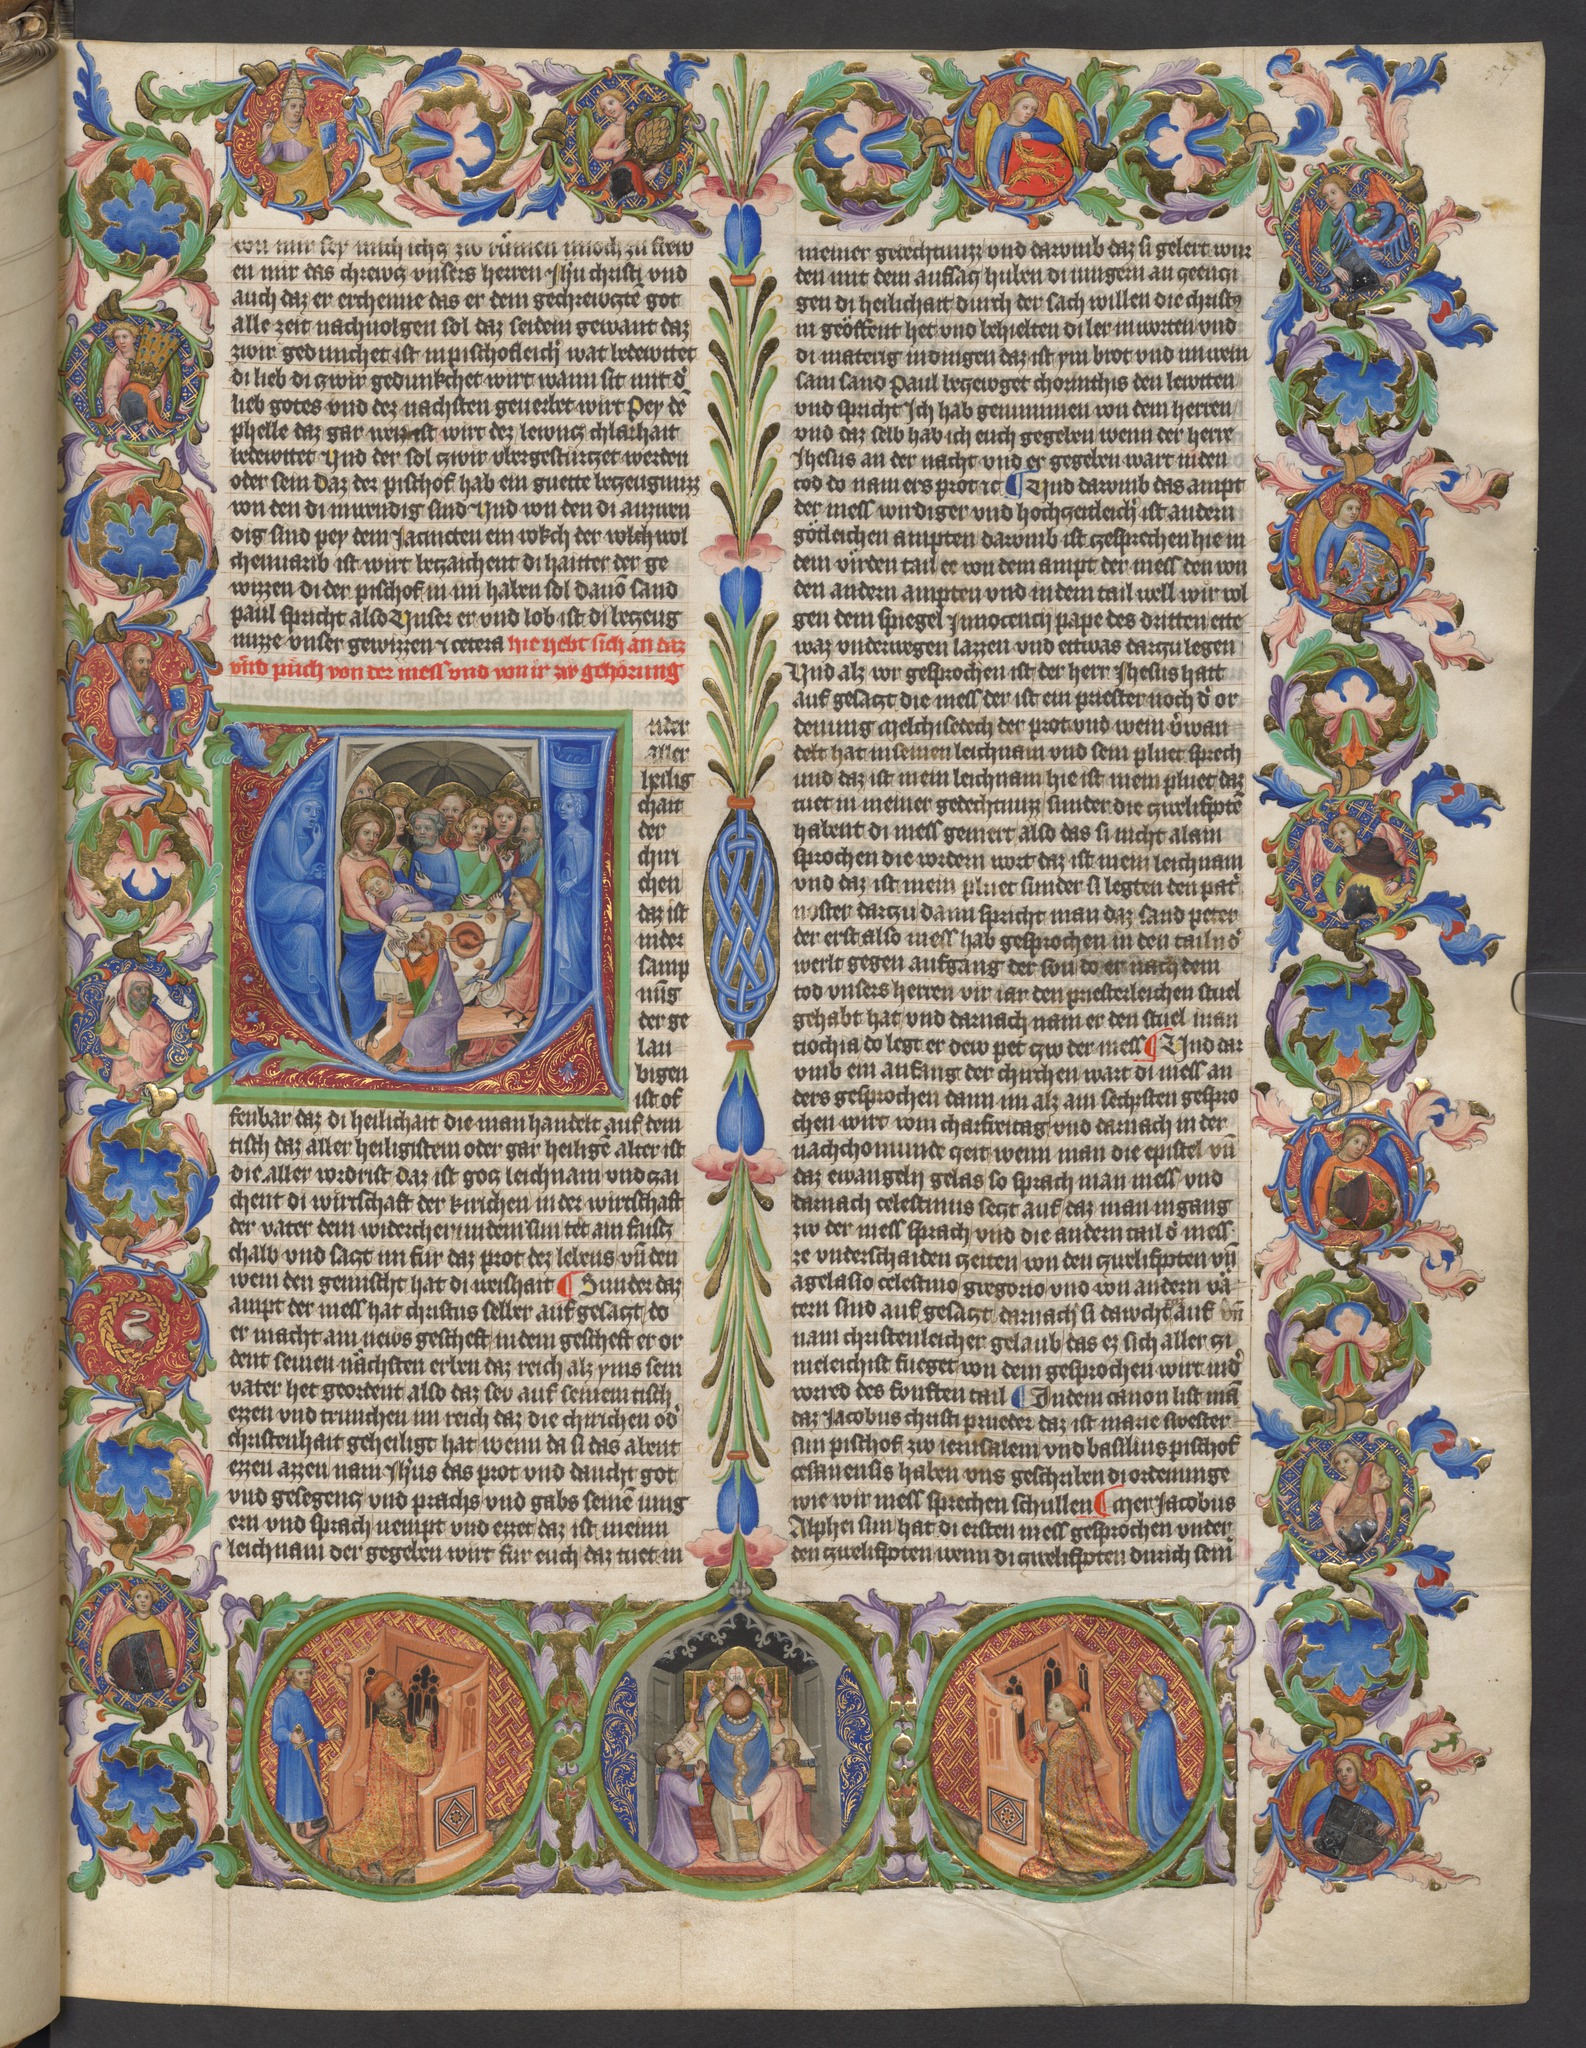 von mir sey mich ichtz zw rümen nuoch zu frew
en nur das chrewcz vnsers herren Jhu christi vnd
auch daz er erchenne das er dem gechrewczte got
alle zeit nachuolgen sol daz seidem gewant daz
zwir gedunchet ist in pischofleich wat bedewttet
di lieb di zwir gedunkchet wirt wann sit mit d
lieb gotes vnd dez nachsten geuerbet wirt Pey de
phelle daz gar weizz ist wirt dez lewncz chlarhait
bedewttet Vnd der sol zwir vbergesturczet werden
oder sein Daz der pischof hab ein guette bezeugnuzz
von den di inwendig sind Vnd von den di auzwen
dig sind pey dem Jacincten ein wolch der wolch vol
chenuarib ist wirt bezaichent di hauter der ge
wizzen di der pischof in im haben sol Dauon Sand
paul spricht also Vnser er vnd lob ist di bezeug
nuzze vnser gewizzen & cetera hie hebt sich an daz
vird puch von der mess vnd von ir zw gehorung
nder
aller
heilig
chait
der
chiri
chen
daz ist
in der
samp
nung
der ge
lau
bigen
ist of
fenbar daz di heilichait die man handelt auf dem
tisch daz aller heiligistem oder gar heilige alter ist
die aller vordrist Daz ist gotz leichnam vnd zai
chent di wirtschaft der kirichen in der wirtschaft
der vater dem widercherundem sun tet ain faistz
chalb vnd sagt im fur daz prot dez lebens vn den
wein den gemischt hat di weishait ¶ Sunder daz
ampt der mess hat christus selber auf gesaczt do
er macht ain news gescheft in dem gescheft er or
dent seinen nachsten erben daz reich alz yms sein
vater het geordent also daz sev auf seinem tisch
ezzen vnd trunchen im reich daz die chirichen od
christenhait geheiligt hat wenn da si das abent
ezzen azzen nam Jhus das prot vnd dancht got
vnd gesegentz vnd prachs vnd gabs seine iung
ern vnd sprach nempt vnd ezzet daz ist meinn
leichnam der gegeben wirt fur euch daz tuet in
meiner gedechtnuzz vnd darumb daz si gelert wur
den mit dem aufsacz huben di iungern an zeengi
gen di heilichait durch der sach willen die christus
in geöffent het vnd behielten di ler in worten vnd
di materig in dingen daz ist ym brot vnd im wein
sam sand Paul bezewget chorinthis den lewtten
vnd spricht Ich hab genummen von dem herren
vnd daz selb hab ich euch gegeben wenn der herre
Jhesus an der nacht vnd er gegeben wart in den
tod do nam ers prot rc ¶ Vnd darumb das ampt
der mess wirdiger vnd hochzeitleich ist andern
götleichen ampten darumb ist zesprechen hie in
dem virden tail ee von dem ampt der mess den von
den andern ampten vnd in dem tail well wir vol
gen dem spiegel Innocencij pape des dritten ette
waz vnderwegen lazzen vnd ettwas darzu legen
Vnd alz vor gesprochen ist der herr Jhesus hatt
auf gesaczt die mess der ist ein priester noch d or
denung Melchisedech der prot vnd wein v wan
delt hat in seinen leichnam vnd sein pluet sprech
und daz ist mein leichnam hie ist mein pluet daz
tuet in meiner gedechtnuzz sunder die zwelifpote
habent di mess gemert also das si nicht alain
sprochen die vordern wort daz ist mein leichnam
vnd daz ist mein pluet sunder si legten den pat
noster darczu dann spricht man daz sand peter
der erst also mess hab gesprochen in den tailn d
werlt gegen aufgang der sun do er nach dem
tod vnsers herren vir iar den priesterleichen stuel
gehabt hat vnd darnach nam er den stuel in an
tiochia do legt er drew pet zw der mess ¶ Vnd dar
vmb ein anfang der chirchen wart di mess an
ders gesprochen dann nu alz am sechsten gespro
chen wirt vom charfreitag vnd darnach in der
nachchomunde zeit wenn man die epistel vn
daz ewangelii gelas so sprach man mess vnd
darnach celestinus seczt auf daz man ingang
zw der mess sprach vnd die andern tail d mess
ze vnderschaiden zeiten von den zwelifpoten vn
a gelasio celestino gregorio vnd von andern va
tern sind auf gesaczt darnach si dawcht auf vn
nam christenleicher gelaub das ez sich aller zi
meleichist fueget von dem gesprochen wirt in d
vorred des funften tail ¶ In dem canon list ma
daz Jacobus christi prueder daz ist marie swester
sun pischof zw ierusalem vnd basilius pischof
cesariensis haben vns geschriben di ordenunge
wie wir mess sprechen schullen ¶ Mer Jacobus
Alphei sun hat di ersten mess gesprochen vnder
den zwelifpoten wenn di zwelifpoten durich sein